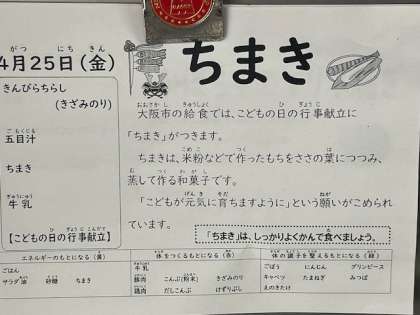 がつ にち きん
4月25日(金)
きんぴらちらし
(きざみのり)
ごもくじる
五目汁
ちまき
ぎゅうにゅう
牛乳
ひ ぎょうじこんだて
【こどもの日の行事献立】
ちまき
おおさかし きゅうしょく ひ ぎょうじ
大阪市の給食では、こどもの日の行事献立に
「ちまき」がつきます。
こめこ つく は
ちまきは、米粉などで作ったもちをささの葉につつみ、
む つく わがし
蒸して作る和菓子です。
げんき そだ ねが
「こどもが元気に育ちますように」という願いがこめられ
ています。
た
「ちまき」は、しっかりよくかんで食べましょう。
エネルギーのもとになる(黄)
ごはん
サラダ油 砂糖 ちまき
体をつくるもとになる(赤)
牛乳
豚肉 こんぶ(粉末) きざみのり
鶏肉 だしこんぶ けずりぶし
体の調子を整えるもとになる(緑)
ごぼう にんじん グリンピース
キャベツ たまねぎ みつば
えのきたけ